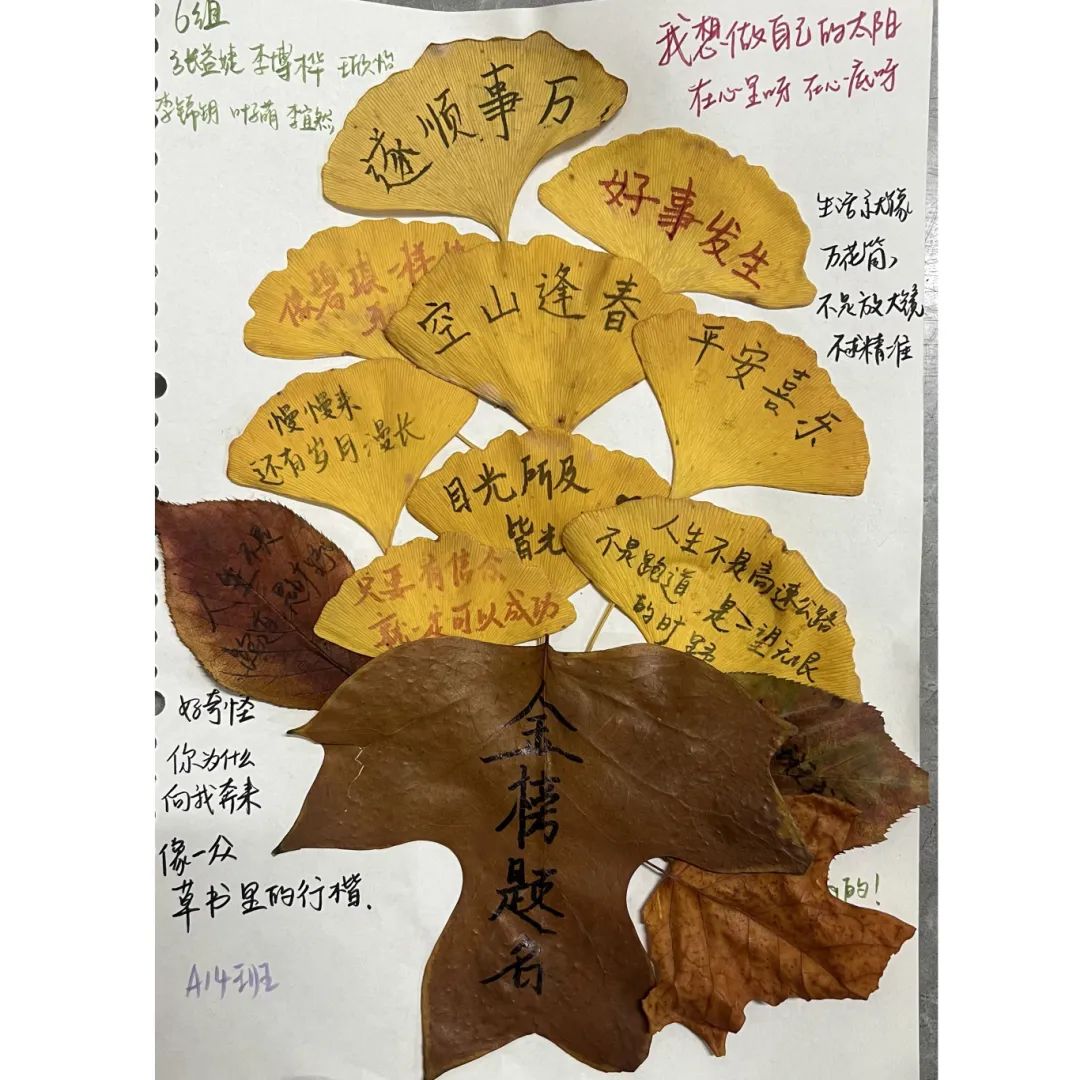 6组
张益婕 李博桦
李锦玥 叶子萌 李宜然
我想做自己的太阳
在心里呀 在心底呀
遂顺事万
好事发生
生活就像
万花筒,
不是放大镜
不求精准
像碧琪一样
空山逢春
平安喜乐
慢慢来
还有岁月漫长
目光所及
皆光
人生不是高速公路
不是跑道 是一望无垠
的时野
只要有信念
就一定可以成功
人生不是
好奇怪
你为什么
向我奔来
像一众
草书里的行楷.
金榜题名
的!
A14班